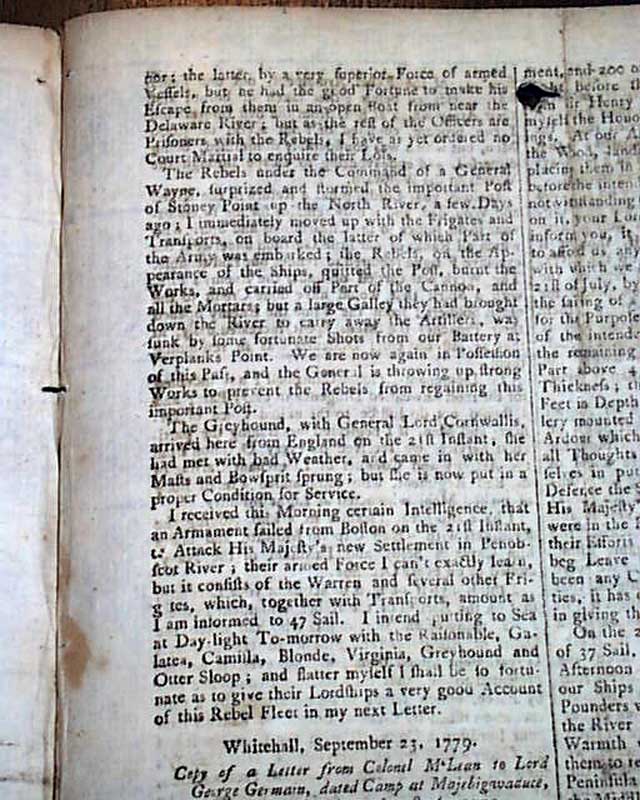 the latter, by a very superior Force of armed
Veſſels, but he had the good Fortune to make his
Eſcape from them in an open Boat from near the
Delaware River; but as the reſt of the Officers are
Priſoners with the Rebels, I have as yet ordered no
Court Martial to enquire their Loſs.
The Rebels under the Command of a General
Wayne, ſurprized and ſtormed the important Poſt
of Stoney Point up the North River, a few Days
ago; I immediately moved up with the Frigates and
Tranſports, on board the latter of which Part of
the Army was embarked; the Rebels, on the Ap-
pearance of the Ships, quitted the Poſt, burnt the
Works, and carried off Part of the Cannon, and
all the Mortars; but a large Galley they had brought
down the River to carry away the Artillery, was
ſunk by ſome fortunate Shots from our Battery at
Verplanks Point. We are now again in Poſſeſſion
of this Paſs, and the General is throwing up ſtrong
Works to prevent the Rebels from regaining this
important Poſt.
The Greyhound, with General Lord Cornwallis,
arrived here from England on the 21ſt Inſtant, ſhe
had met with bad Weather, and came in with her
Maſts and Bowſprit ſprung; but ſhe is now put in a
proper Condition for Service.
I received this Morning certain Intelligence, that
an Armament ſailed from Boſton on the 21ſt Inſtant,
to Attack His Majeſty's new Settlement in Penob-
ſcot River; their armed Force I can't exactly learn,
but it conſiſts of the Warren and ſeveral other Fri-
gates, which, together with Tranſports, amount as
I am informed to 47 Sail. I intend putting to Sea
at Day-light To-morrow with the Raiſonable, Ga-
latea, Camilla, Blonde, Virginia, Greyhound and
Otter Sloop; and flatter myſelf I ſhall be ſo fortu-
nate as to give their Lordſhips a very good Account
of this Rebel Fleet in my next Letter.
Whitehall, September 23, 1779.
Copy of a Letter from Colonel M'Lean to Lord
George Germain, dated Camp at Majebigwaduce,
ment, and 200
before
Sir Henry
myſelf the Hono
ings. At our A
the Wood, land
placing them in
before the inten
notwithſtanding
on it, your Lor
inform you, it
to afford us any
with which we
21ſt of July, by
the ſaring of
for the Purpoſe
of the intende
the remaining
Part above 4
Thickneſs; th
Feet in Depth
lery mounted
Ardour which
all Thoughts
ſelves in pu
Defence the S
His Majeſty
were in the
their Efforts
beg Leave
been any C
ties, it has
in giving th
On the 2
of 37 Sail,
Afternoon
our Ships
Pounders
the River
Warmth
them to re
Peninſula